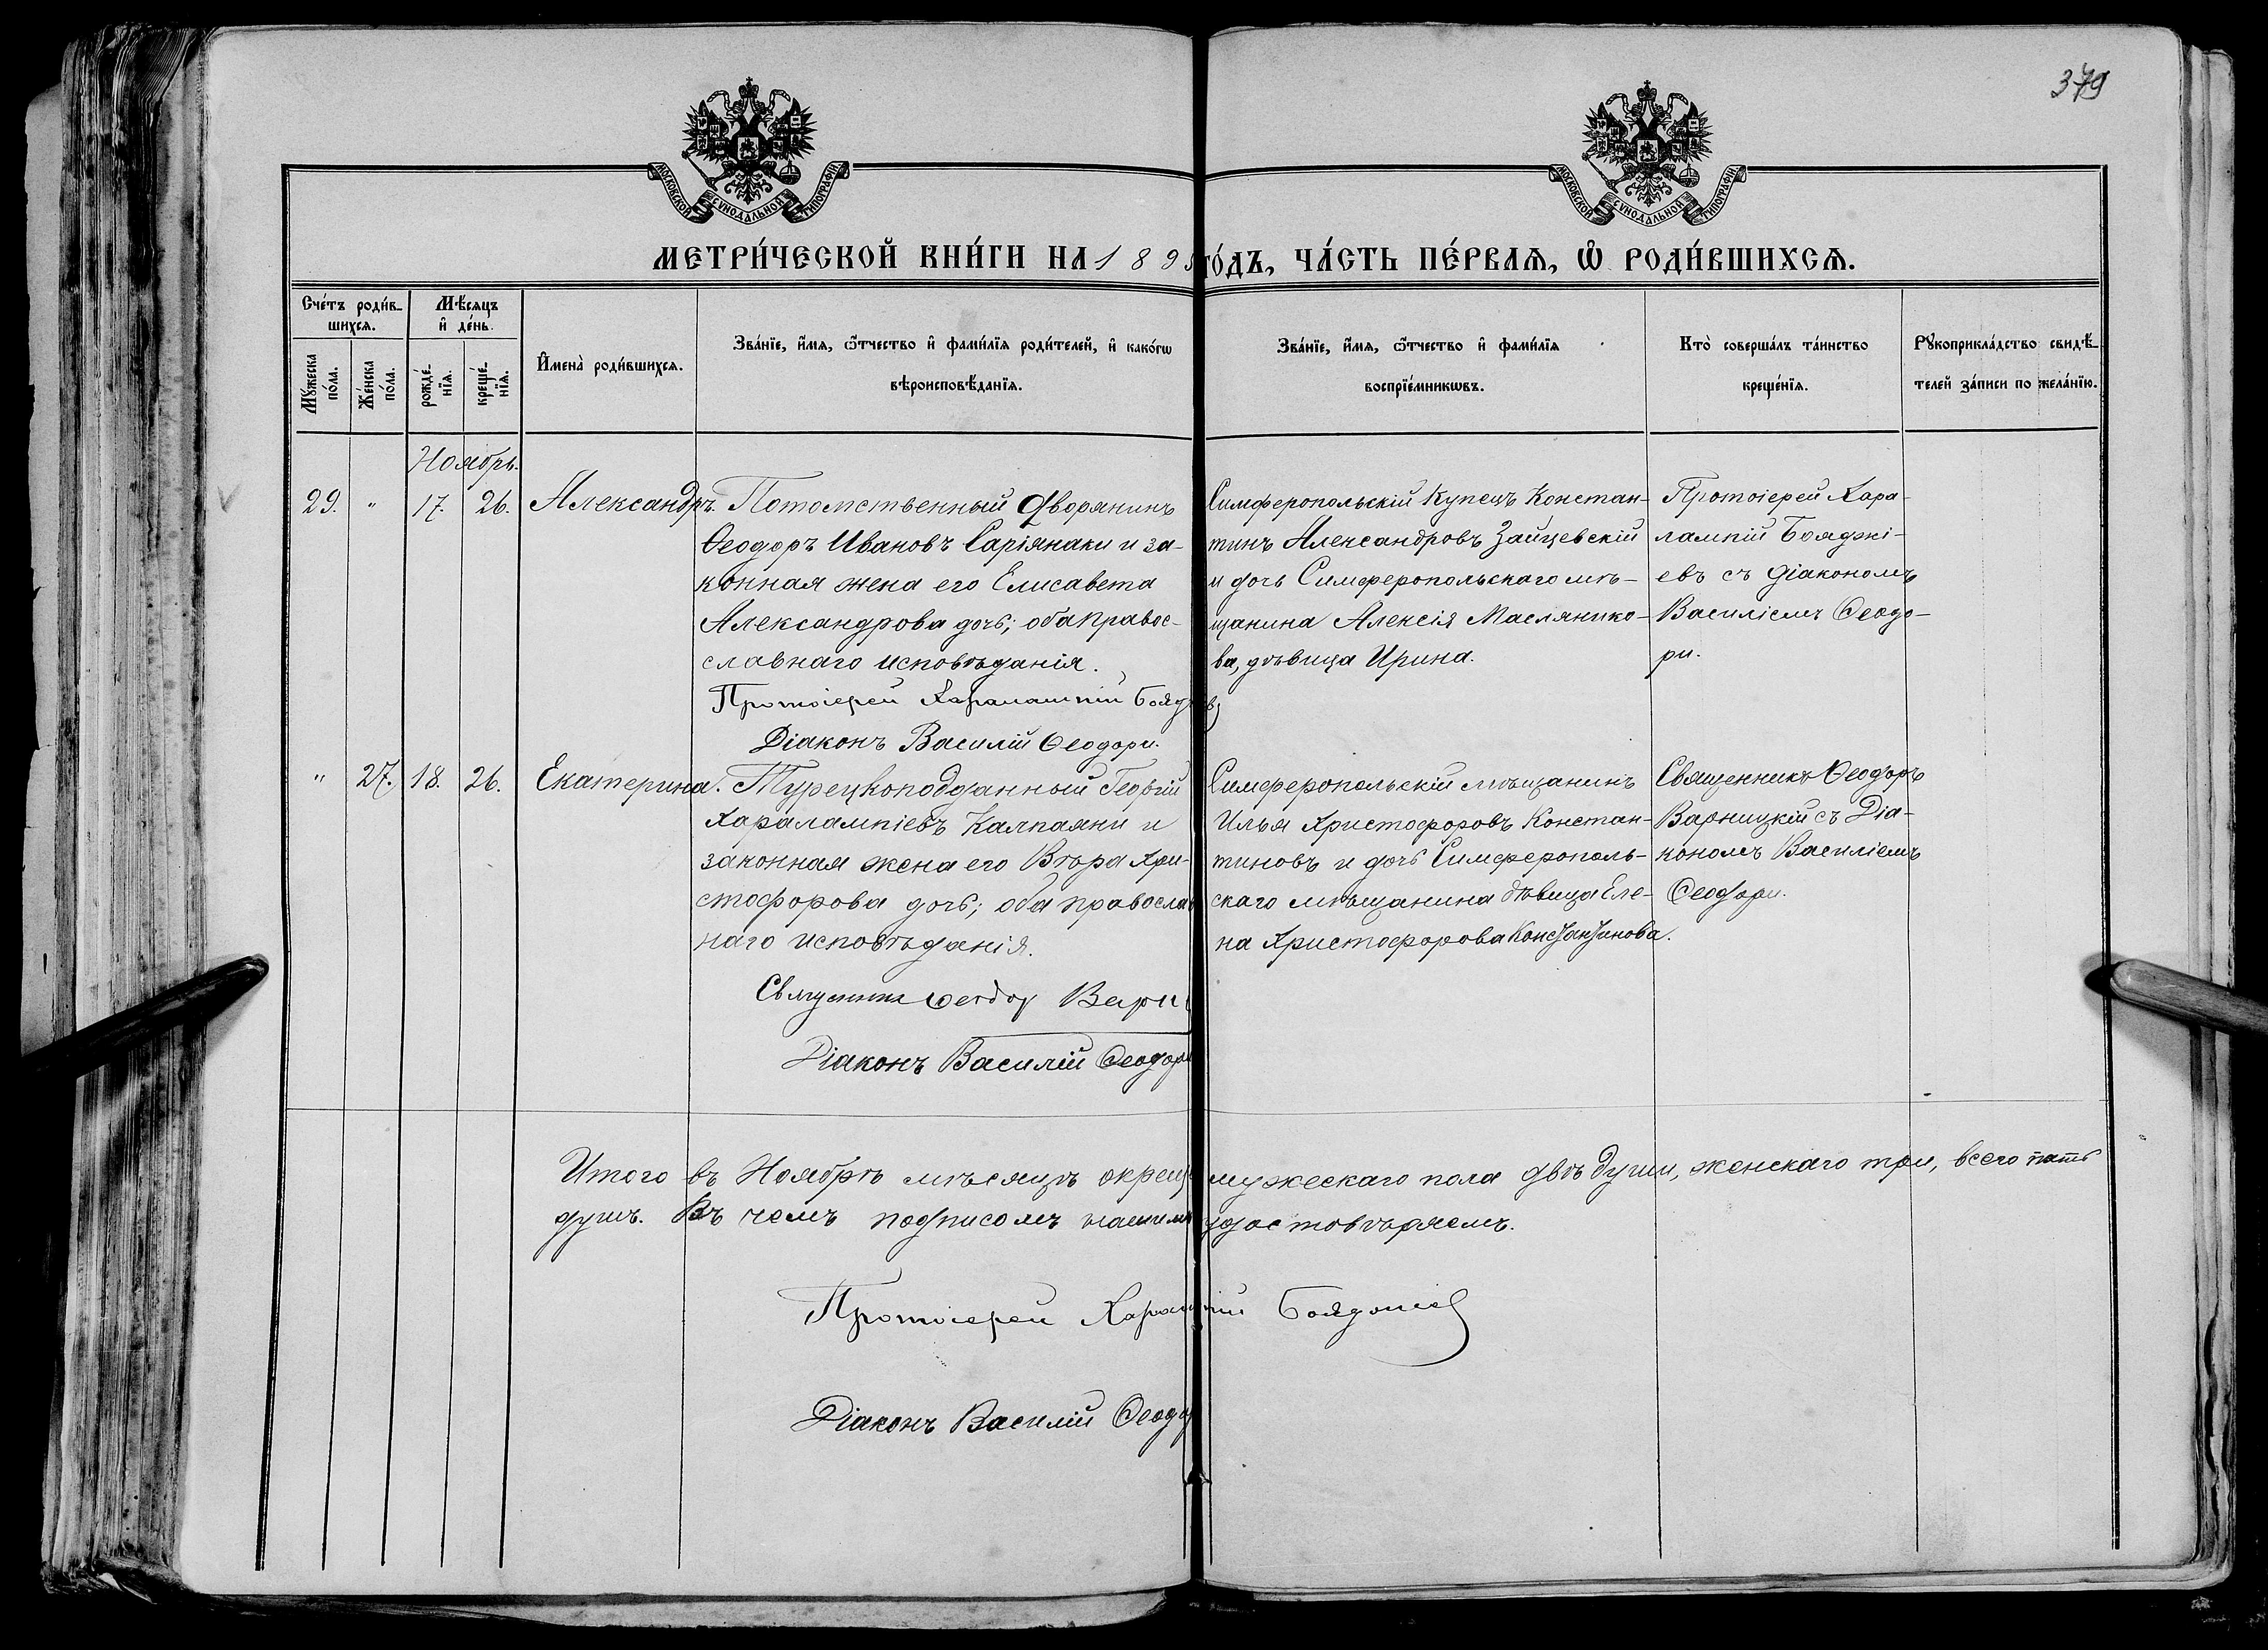 379
МОСКОВСКОЙ СѴНОДАЛЬНОЙ ТИПОГРАФІИ
МОСКОВСКОЙ СѴНОДАЛЬНОЙ ТИПОГРАФІИ
МЕТРИ́ЧЕСКОЙ КНИ́ГИ НА 189 го́дъ, ЧА́СТЬ ПЕ́РВАѦ, Ѡ҆ РОДИ́ВШИХСѦ.
Сче́тъ роди́в-
шихсѧ.
Мѣ́сѧцъ
и҆ де́нь.
Мꙋ́жеска
по́ла.
Же́нска
по́ла.
рожде́-
нїѧ.
креще́-
нїѧ.
И҆мена̀ роди́вшихсѧ.
Зва́нїе, и҆́мѧ, ѻ҆́тчество и҆ фами́лїѧ роди́телей, и҆ како́гѡ
вѣроисповѣ́данїѧ.
Зва́нїе, и҆́мѧ, ѻ҆́тчество и҆ фами́лїѧ
воспрїе́мникѡвъ.
Кто̀ соверша́лъ та́инство
креще́нїѧ.
Рꙋкоприкла́дство свидѣ́-
телей за́писи по жела́нїю.
Ноябрь.
29. " 17. 26. Александръ. Потомственный Дворянинъ
Ѳеодоръ Ивановъ Саріянаки и за-
конная жена его Елисавета
Александрова дочь; оба правос-
славнаго исповѣданія.
Протоіерей Харалампій
Діаконъ Василій Ѳеодори.
Симферопольскій Купецъ Констан-
тинъ Александровъ Зайцевскій
и дочь Симферопольскаго мѣ-
щанина Алексія Маслянико-
ва, дѣвица Ирина.
Протоіерей Хара-
лампій Бояджі-
евъ съ діакономъ
Василіемъ Ѳеодо-
ри.
" 27. 18. 26. Екатерина. Турецкоподданный Георгій
Харалампіевъ Калпаяни и
законная жена его Вѣра Хри-
стофорова дочь; оба православ
наго исповѣданія.
Священникъ Ѳеодоръ Варни
Діаконъ Василій Ѳеодори
Симферопольскій мѣщанинъ
Илья Христофоровъ Констан-
тиновъ и дочь Симферополь-
скаго мѣщанина дѣвица Еле-
на Христофорова Константинова.
Священникъ Ѳеодоръ
Варницкій съ Діа-
кономъ Василіемъ
Ѳеодори.
Итого въ Ноябрѣ мѣсяцѣ окрещ мужескаго пола двѣ души, женскаго три, всего пять
душъ. Въ чемъ подписомъ нашимъ удостовѣряемъ.
Протоіерей Харалампій Бояджіевъ
Діаконъ Василій Ѳеодо